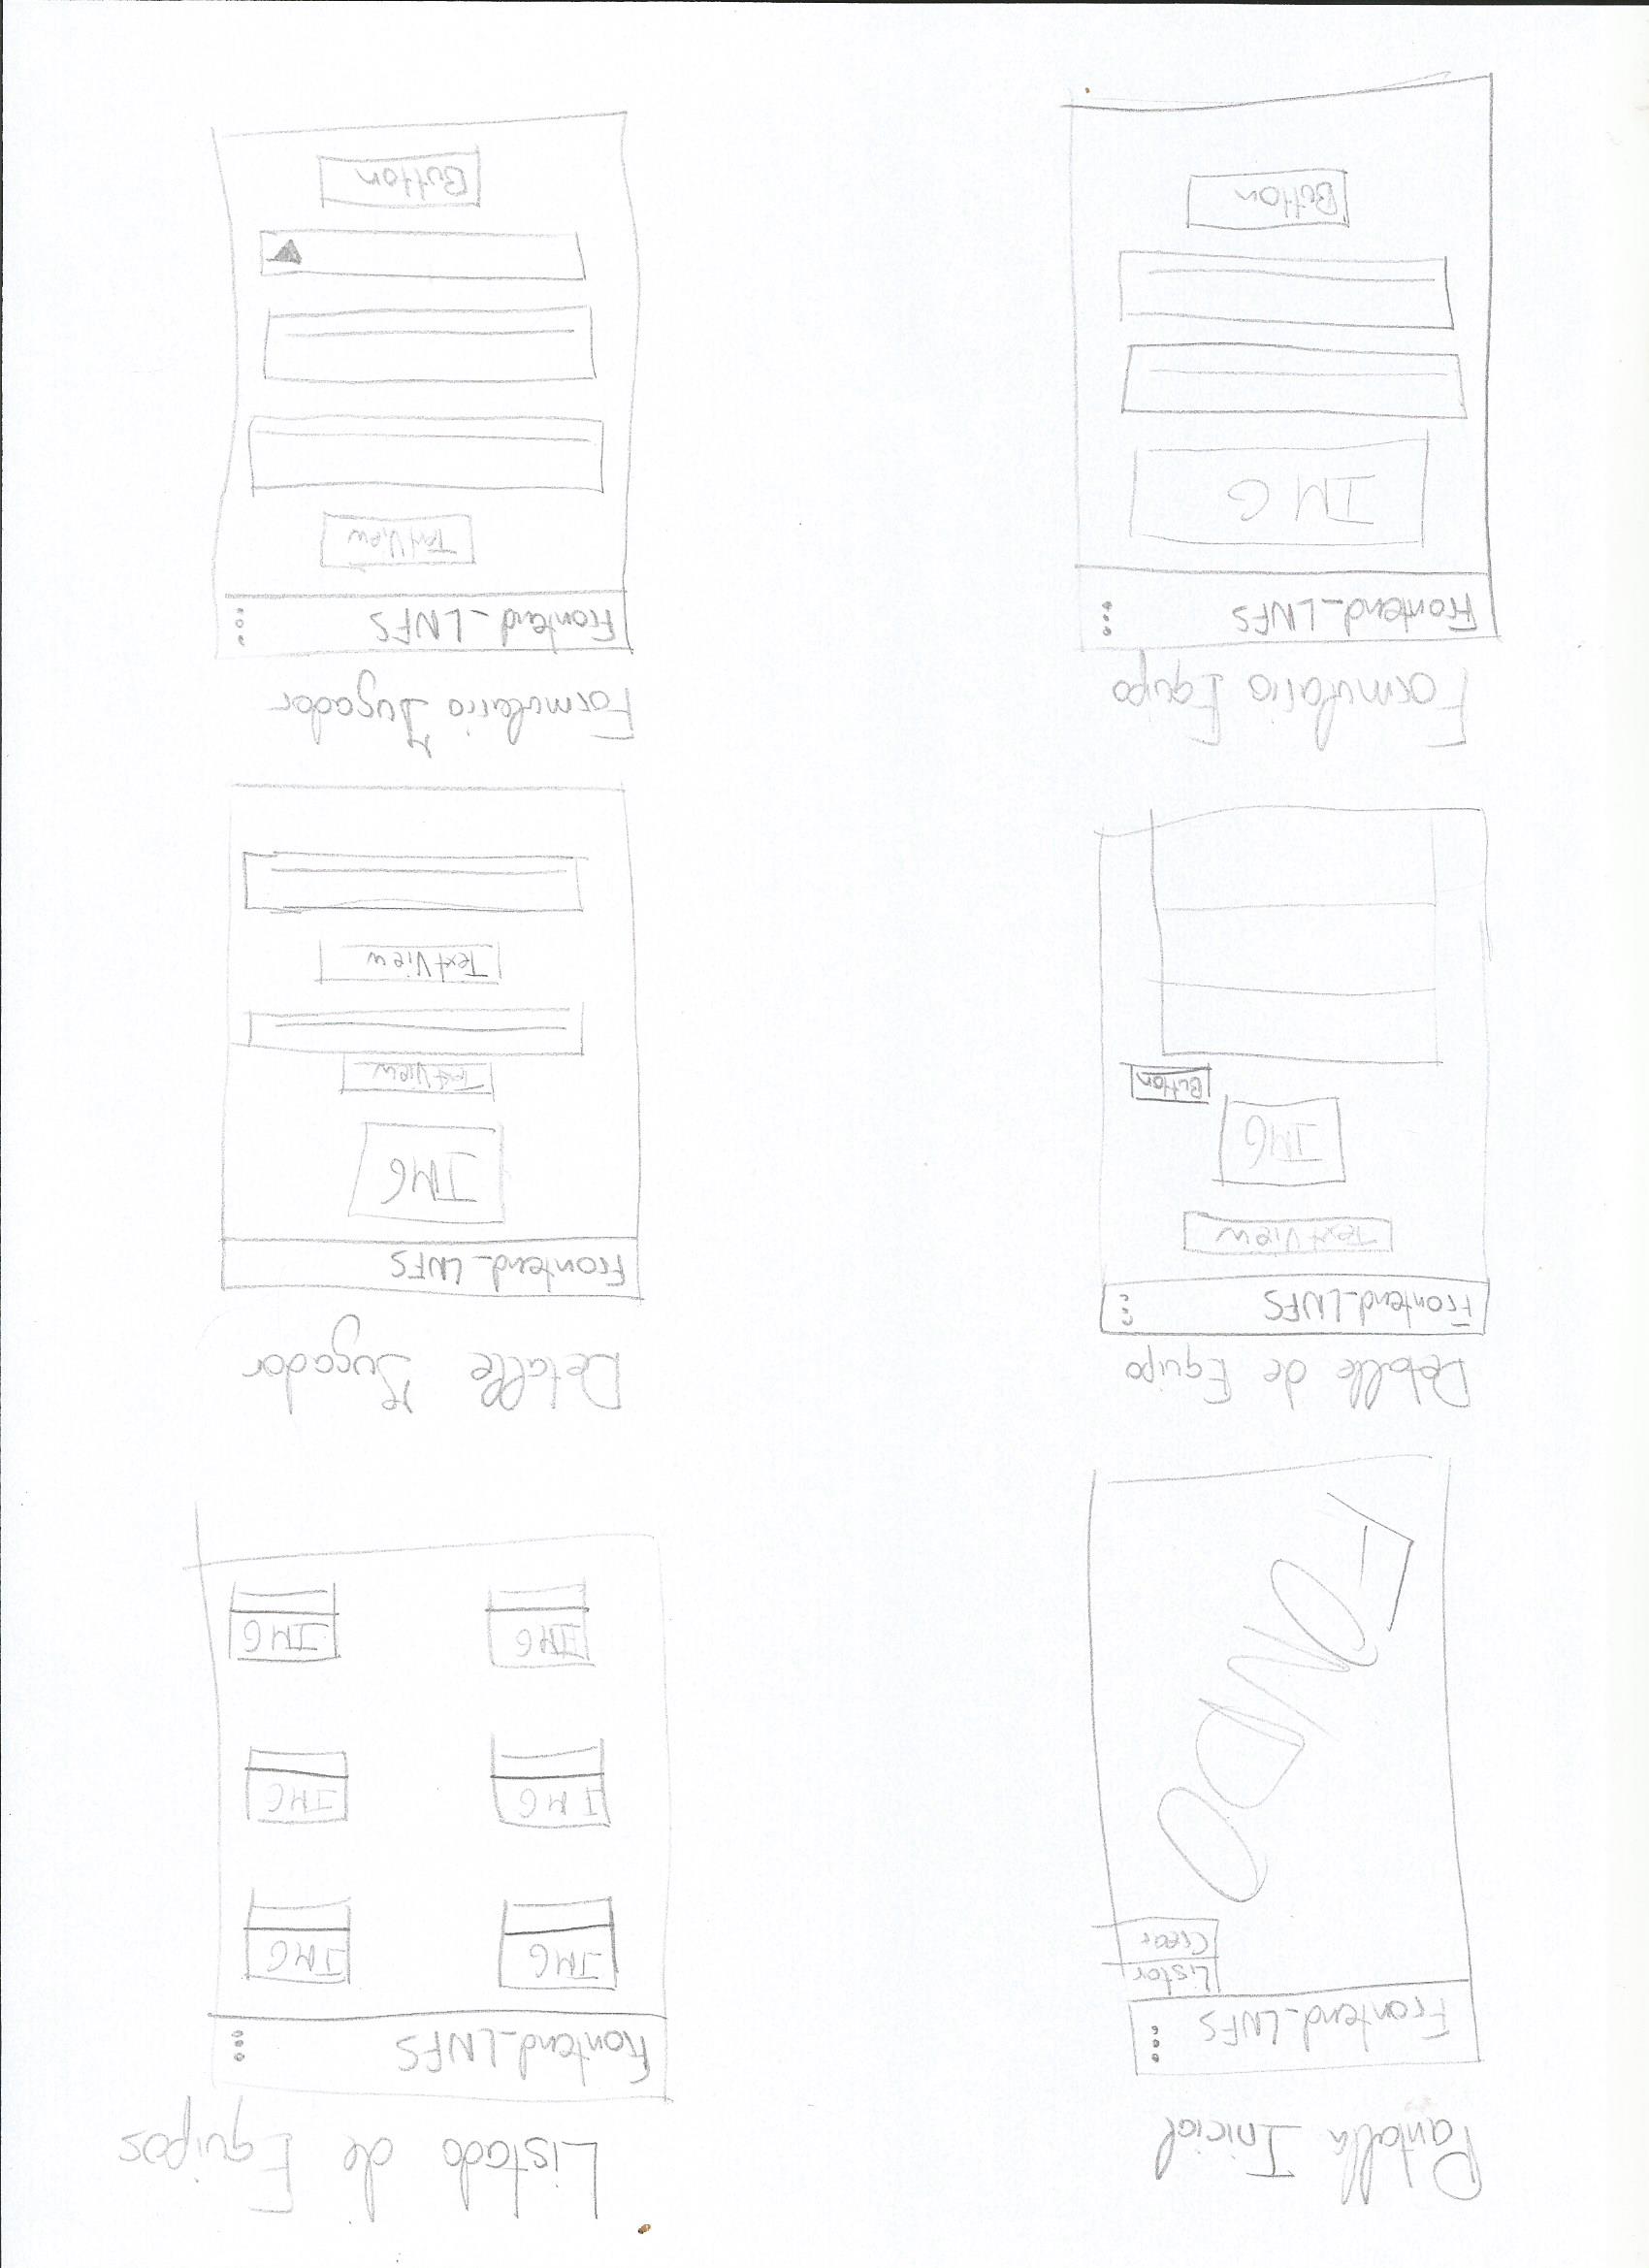 Pantalla Inicial
Frontend_LNFS
Listar
Crear
FONDO
Listado de Equipos
Frontend_LNFS
IMG
IMG
IMG
IMG
IMG
IMG
Detalle de Equipo
Frontend_LNFS
TextView
IMG
Button
Detalle Jugador
Frontend_LNFS
IMG
TextView
TextView
Formulario Equipo
Frontend_LNFS
IMG
Button
Formulario Jugador
Frontend_LNFS
TextView
Button